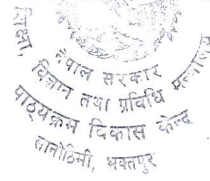 नेपाल सरकार
शिक्षा, विज्ञान तथा प्रविधि मन्त्रालय
पाठ्यक्रम विकास केन्द्र
सानोठिमी, भक्तपुर